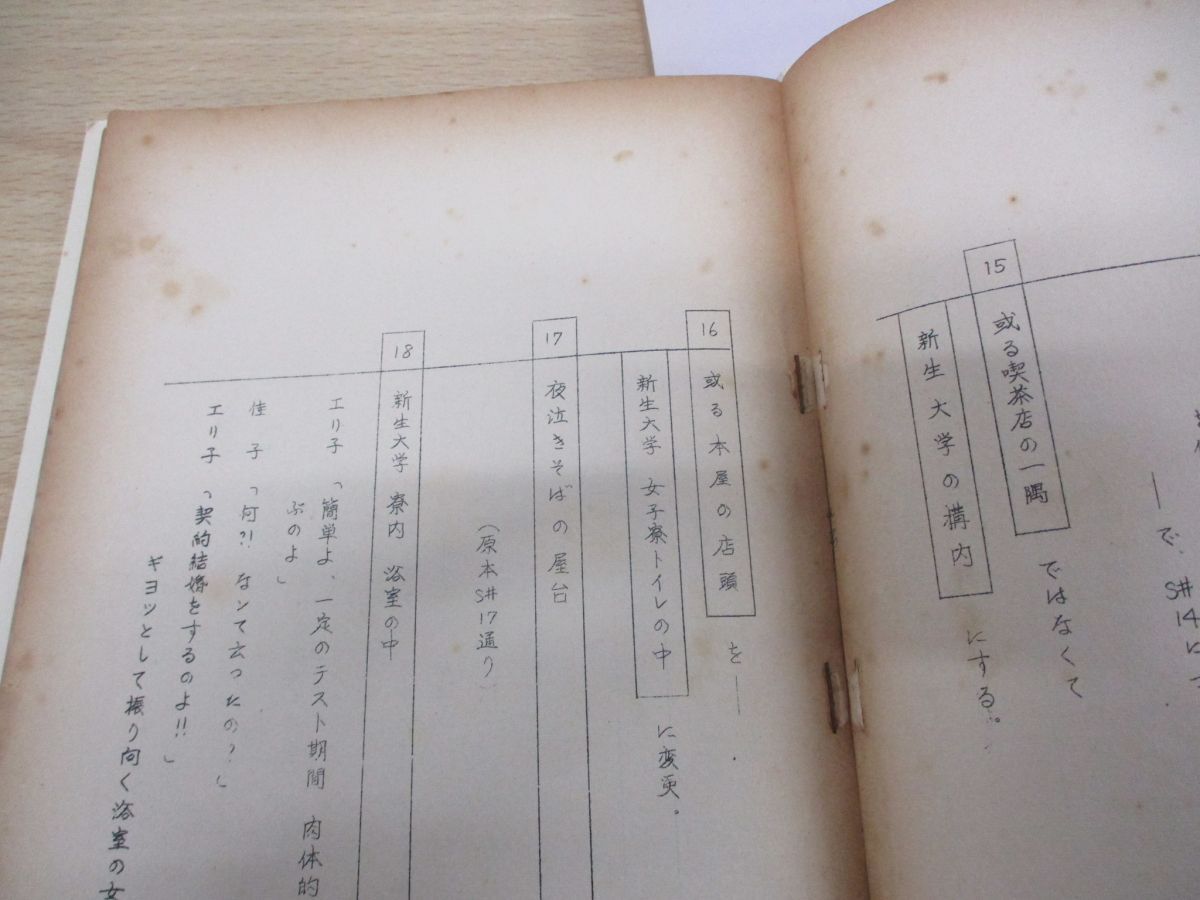 で、S#14に
15
或る喫茶店の一隅 ではなくて
新生大学の構内 にする。
16
或る本屋の店頭 を――
新生大学 女子寮トイレの中 に変更。
17
夜泣きそばの屋台
(原本S#17通り)
18
新生大学 寮内 浴室の中
エリ子「簡単よ、一定のテスト期間 肉体的
ぶのよ」
佳子「何?! なンて云ったの?」
エリ子「契約結婚をするのよ!!」
ギョッとして振り向く浴室の女